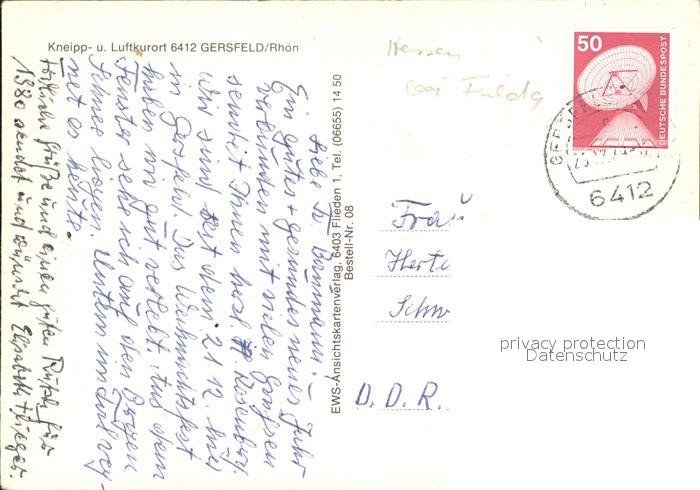 Kneipp- u. Luftkurort 6412 GERSFELD/Rhön
Liebe Fr. Baumann! –
Ein gutes + gesundes neues Jahr
verbunden mit vielen Grüßen
sendet Ihnen herzl. Rosenburg.
Wir sind seit dem 21.12. hier
in Gersfeld. Das Weihnachtsfest
haben wir gut verlebt. Aus dem
Fenster sehe ich auf den Bergen
Schnee liegen. Unten im Tal reg-
net es heute.
Grüße und einen guten Rutsch für
1980 sendet und wünscht Elisabeth
EWS-Ansichtskartenverlag, 6403 Flieden 1, Tel. (06655) 14 50
Bestell-Nr. 08
Hessen
bei Fulda
50
DEUTSCHE BUNDESPOST
6412
Frau
Herta
Schw
D.D.R.
privacy protection
Datenschutz